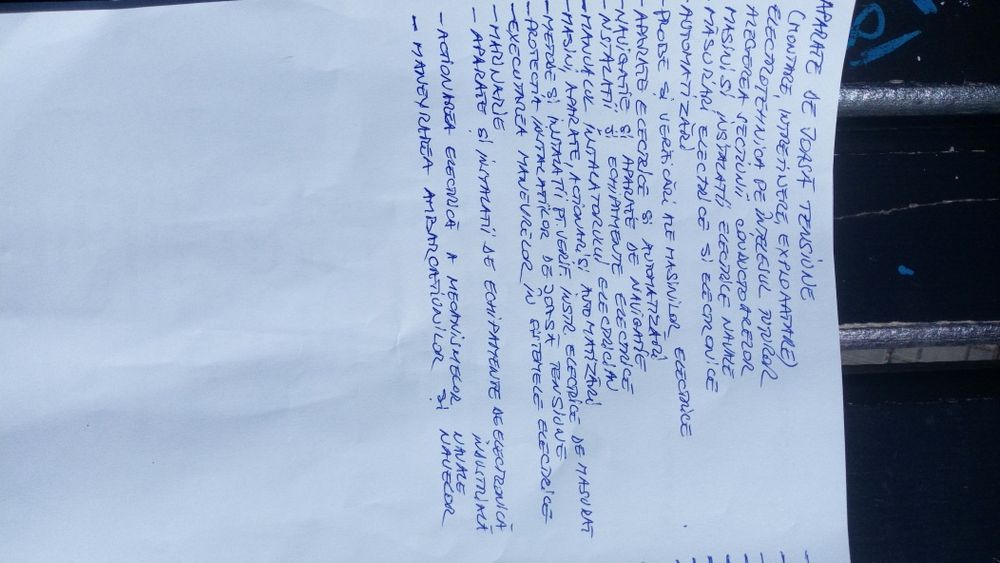 APARATE DE JOASĂ TENSIUNE
(MONTARE, INTRETINERE, EXPLOATARE)
ELECTROTEHNICA PE INTELESUL TUTUROR
ALEGEREA SECTIUNII CONDUCTOARELOR
MASINI SI INSTALATII ELECTRICE NAVALE
- MĂSURĂRI ELECTRICE SI ELECTRONICE
- AUTOMATIZĂRI
- PROBE ȘI VERIFICĂRI ALE MASINILOR ELECTRICE
- APARATE ELECTRICE SI AUTOMATIZĂRI
- NAVIGATIE SI APARATE DE NAVIGATIE
- INSTALATII ȘI ECHIPAMENTE ELECTRICE
- MANUALUL INSTALATORULUI ELECTRICIAN
- MASINI, APARATE, ACTIONARI SI AUTOMATIZĂRI
- METODE SI INSTALATII PT. VERIF. INSTR ELECTRICE DE MASURAT
- PROTECTIA INSTALATIILOR DE JOASA TENSIUNE
- EXECUTAREA MANEVRELOR IN SISTEMELE ELECTRICE
- MARINARIE
- APARATE ȘI INSTALATII DE ECHIPAMENTE DE ELECTRONICĂ
INDUSTRIALĂ
- ACTIONAREA ELECTRICĂ A MECANISMELOR
NAVALE
- MANEVRAREA AMBARCATIUNILOR ȘI NAVELOR